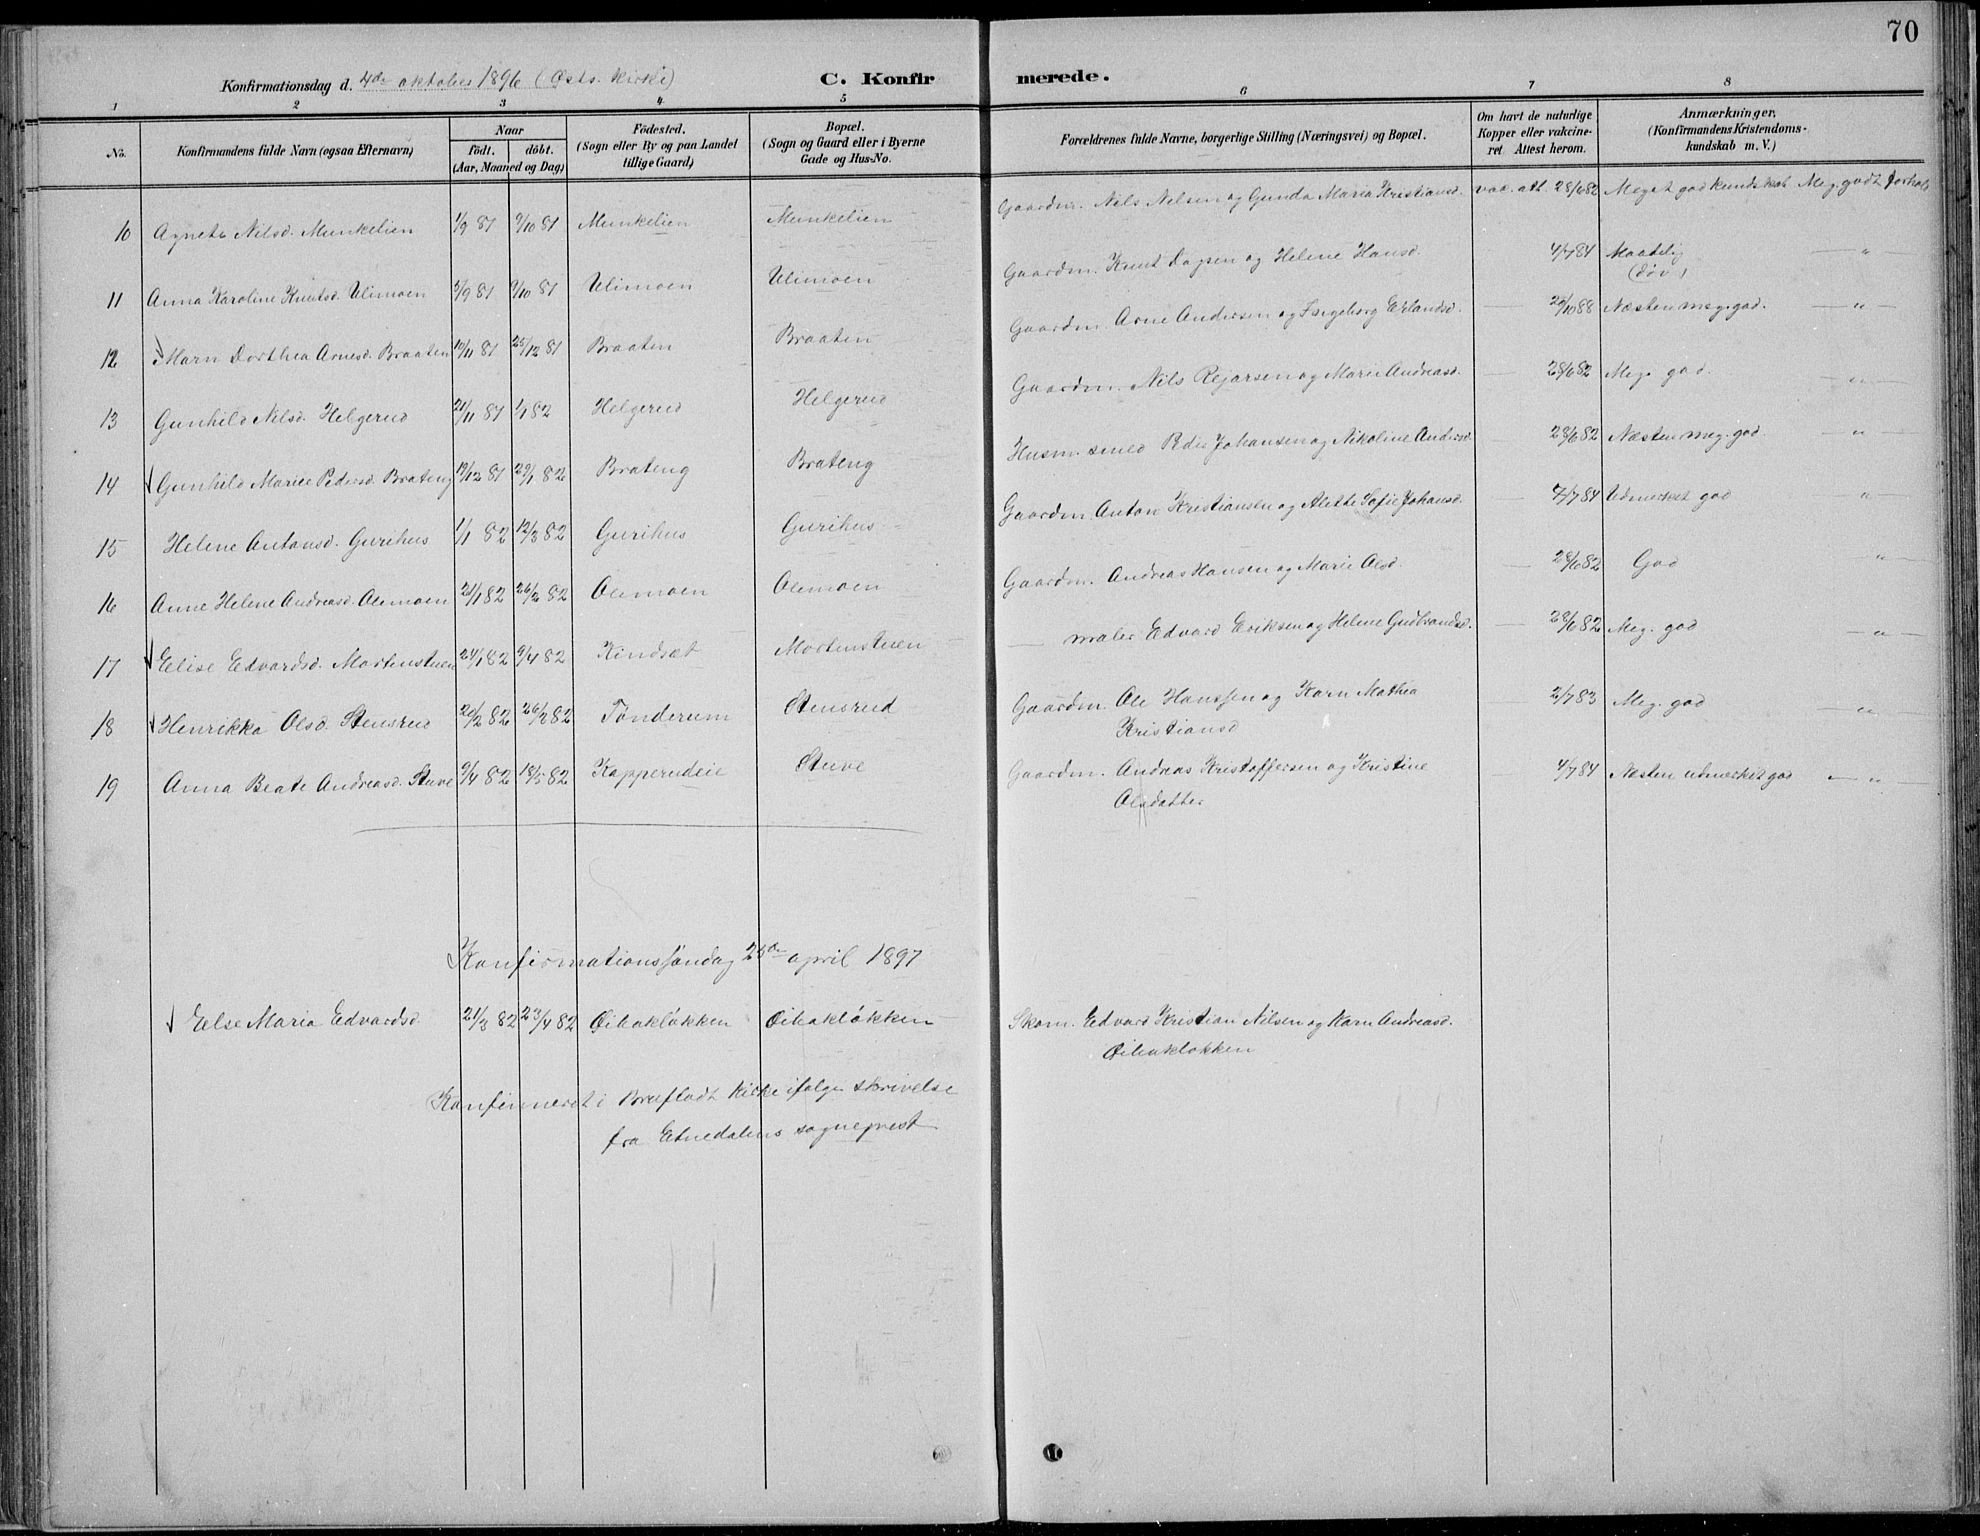 70
Konfirmationsdag d. 4de oktober 1896 (Østs. kirke) C. Konfirmerede.
1 2 3 4 5 6 7 8
No. Konfirmandens fulde Navn (ogsaa Efternavn) Naar födt. döbt. (Aar, Maaned og Dag) Födested. (Sogn eller By og paa Landet tillige Gaard) Bopæl. (Sogn og Gaard eller i Byerne Gade og Hus-No. Forældrenes fulde Navne, borgerlige Stilling (Næringsvei) og Bopæl. Om havt de naturlige Kopper eller vakcineret Attest herom. Anmærkninger. (Konfirmandens Kristendomskundskab m. V.)
10 Agnete Nilsd. Munkelien 1/9 81 9/10 81 Munkelien Munkelien Gaardm. Nils Nelsen og Gunda Maria Kristiansd. vac. att. 28/6 82 Meget god kundskab Meg. godt forhold
11 Anna Karoline Knutsd. Ulimoen 5/9 81 9/10 81 Ulimoen Ulimoen Gaardm. Knut Dagsen og Helene Hansd. — 4/7 84 Maadelig (døv) — " —
12 Marn Dorthea Arnesd. Braaten 10/11 81 25/12 81 Braaten Braaten Gaardm. Arne Andersen og Ingeborg Erlandsd. — 22/10 88 Næsten meg. god. — " —
13 Gunhild Nilsd. Helgerud 21/11 81 1/1 82 Helgerud Helgerud Gaardm. Nils Rejarsen og Marie Andreasd. — 28/6 82 Meg. god. — " —
14 Gunhild Marie Pedersd. Brateng 19/12 81 29/1 82 Brateng Brateng Husm. smed Peder Johansen og Nikoline Andersd. — 28/6 82 Næsten meg. god. — " —
15 Helene Antonsd. Gurihus 1/1 82 12/3 82 Gurihus Gurihus Gaardm. Anton Kristiansen og Alette Sofie Johansd. — 4/7 84 Udmerket god "
16 Anne Helene Andreasd. Olemoen 21/1 82 26/2 82 Olemoen Olemoen Gaardm. Andreas Hansen og Marie Olsd. — 28/6 82 God " —
17 Elise Edvardsd. Mortenstuen 24/1 82 9/4 82 Kindsæt Mortenstuen — maler Edvard Eriksen og Helene Gudbrandsd. — 28/6 82 Meg. god — " —
18 Henrikka Olsd. Stensrud 20/2 82 26/3 82 Tønderum Stensrud Gaardm. Ole Hanssen og Karn Mathea Kristiansd — 2/7 83 Meg. god — " —
19 Anna Beate Andreasd. Stuve 9/4 82 18/5 82 Kapperudeie Stuve Gaardm. Andreas Kristoffersen og Kristine Olsdatter — 4/7 84 Næsten udmerket god — " —
Konfirmationssøndag 25de april 1897
Else Maria Edvardsd. 21/3 82 23/4 82 Øibakløkken Øibakløkken Skom. Edvard Kristian Nilsen og Karn Andreasd.
Øibakløkken
Konfirmeret i Brufladt kirke ifølge skrivelse
fra Etnedalens sogneprest